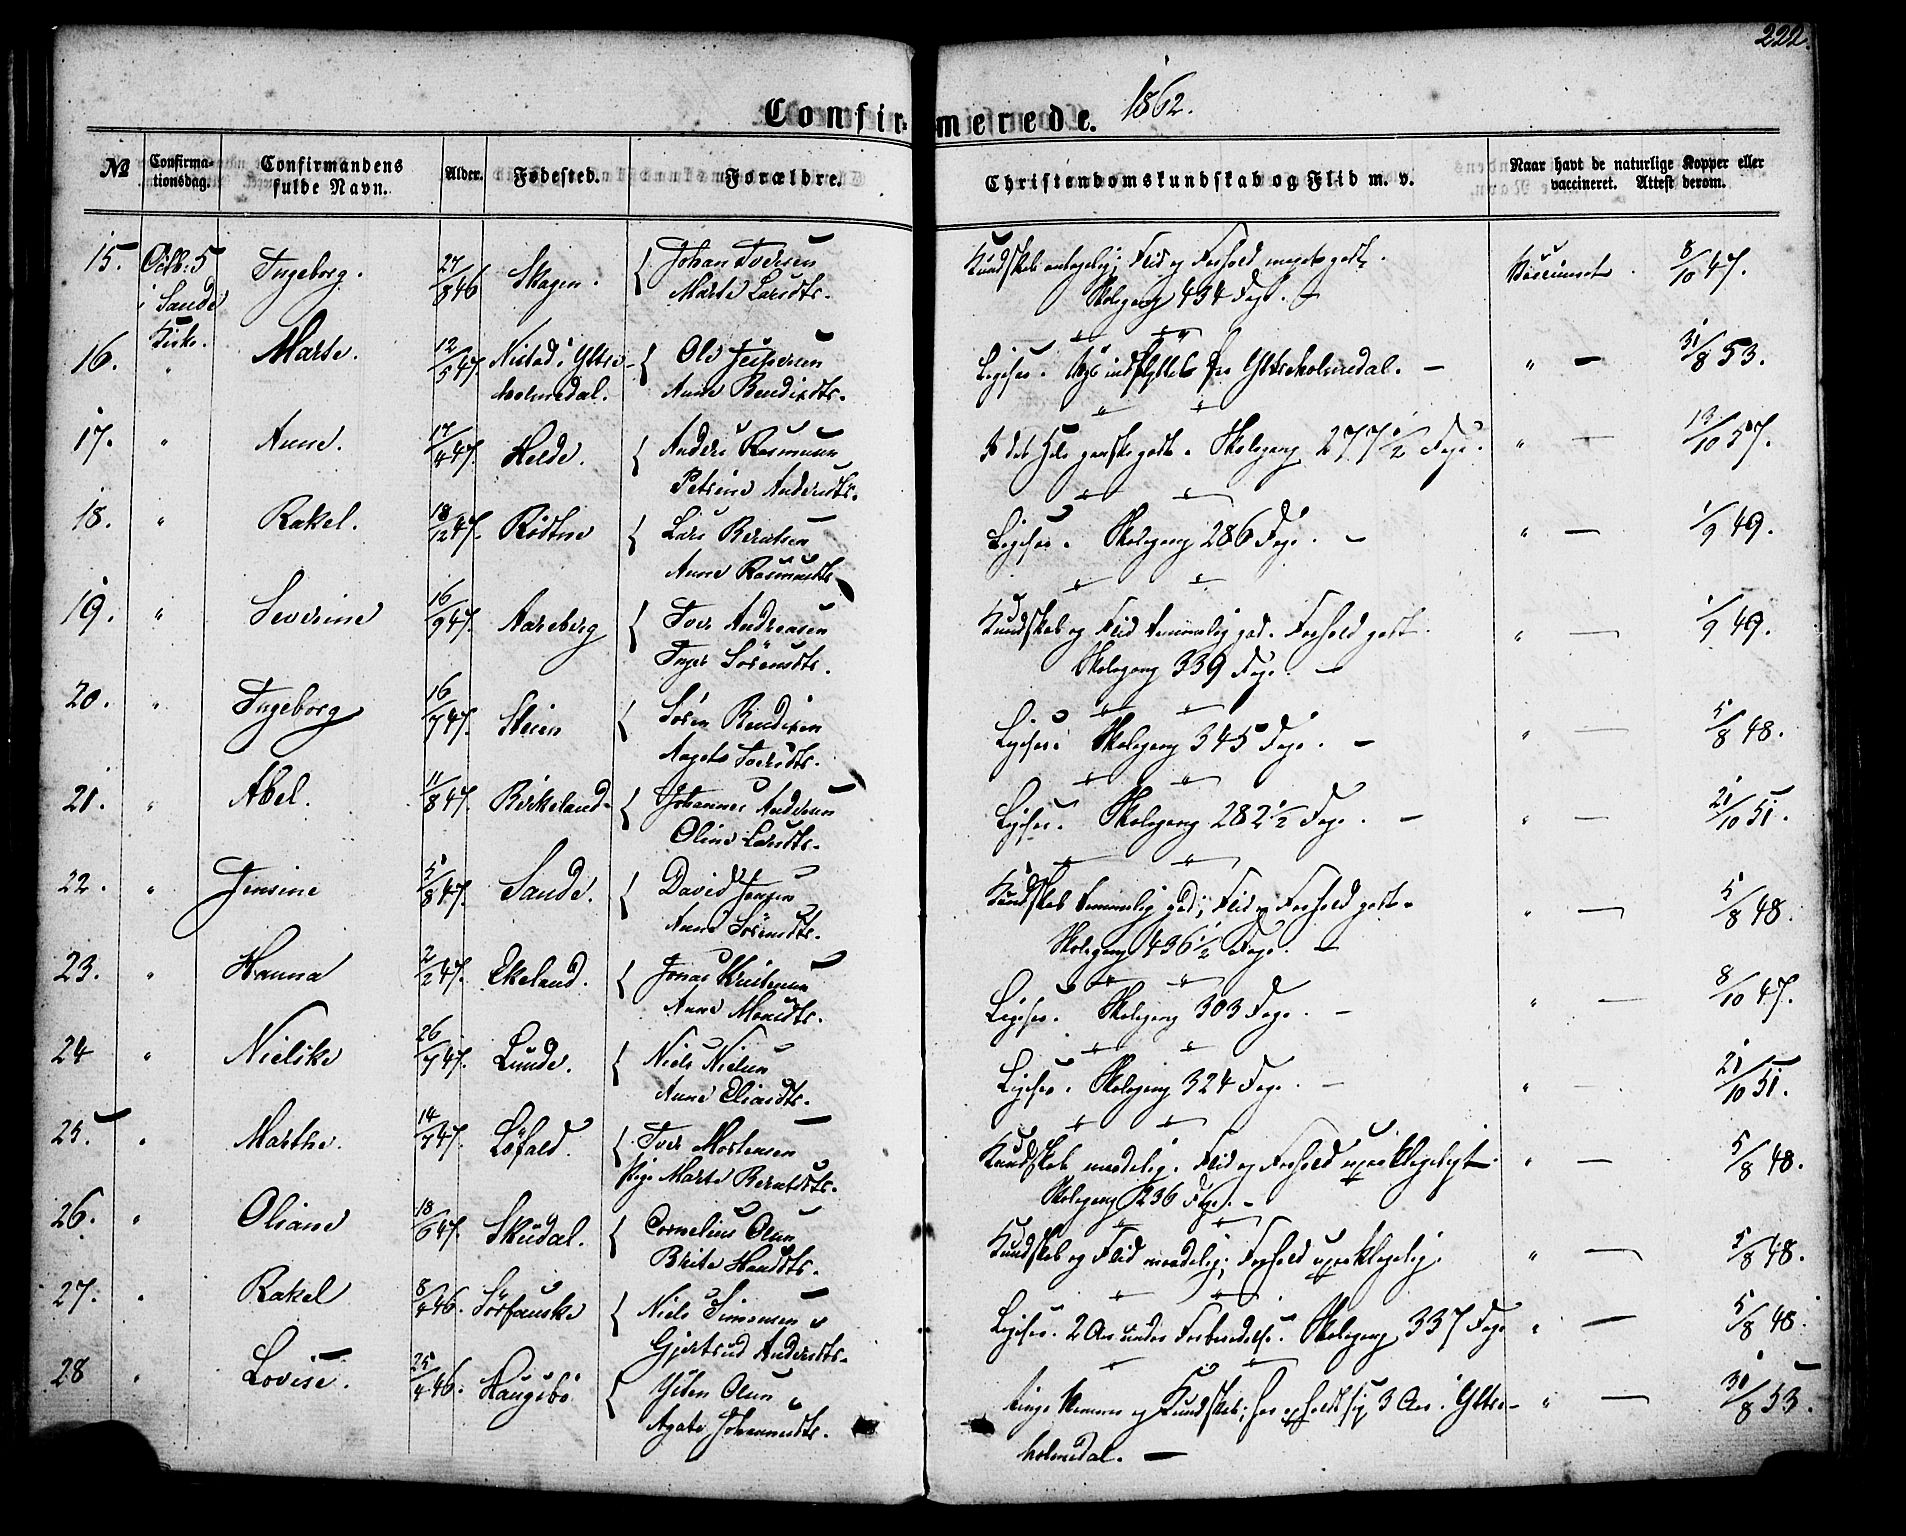 222.
Confirmerede. 1862.
№ Confirma-tionsdag. Confirmandens fulde Navn. Alder. Fødested. Forældre. Christendomskundskab og Flid m. v. Naar havt de naturlige Kopper eller vaccineret. Attest derom.
15. Octb: 5 Ingeborg. 27/8 46 Skagen. { Johan Iversen Kundskab antagelig; Flid og Forhold meget godt. Vaccineret. 8/10 47.
i Sande Marte Larsdtr. Skolegang 434 Dage. —
Kirke.
16. " Marte. 12/5 47. i Yttre- { Ole Jespersen Ligesaa. indflyttet fra Yttreholmedal. — " — 31/8 53.
holmedal. Anne Bendixdtr.
17. " Anne. 17/4 47. Helde. { Anders Rasmusen I det Hele ganske godt. Skolegang 277 1/2 Dage. " — 13/10 57.
Petrine Andersdtr.
18. " Rakel. 18/12 47. Rödtne { Lars Berntsen Ligesaa. Skolegang 286 Dage. — " — 1/9 49.
Anne Rasmusdtr.
19. " Severine 16/9 47. Aareberg { Iver Andreasen Kundskab og Flid temmelig god. Forhold godt. " — 1/9 49.
Inger Sörensdtr. Skolegang 339 Dage. —
20. " Ingeborg 16/7 47. Steien { Sören Bendixen Ligesaa. Skolegang 345 Dage. — " — 5/8 48.
Iversdtr.
21. " Abel. 11/8 47. Birkeland { Johannes Andersen Ligesaa. Skolegang 282 1/2 Dage. — " — 21/10 51.
Oline Larsdtr.
22. " Jensine 5/8 47. Sande. { David Jensen Kundskab temmelig god; Flid og Forhold godt. " — 5/8 48.
Anne Sörensdtr. Skolegang 436 1/2 Dage. —
23. " Hanna 2/2 47. Ekeland. { Jonas Kristensen Ligesaa. Skolegang 303 Dage. — " — 8/10 47.
Anne Monsdtr.
24 " Nielske 26/7 47. Lunde. { Niels Nielsen Ligesaa. Skolegang 324 Dage. — " — 21/10 51.
Anne Eliasdtr.
25. " Marthe. 14/7 47. Löfald. { Iver Mortensen Kundskab maadelig. Flid og Forhold upaaklageligt. " — 5/8 48.
Pige Marte Berntsdtr. Skolegang 236 Dage. —
26. " Oliane 18/6 47. Skudal. { Cornelius Olsen Kundskab og Flid maadelig; Forhold upaaklagelig. " — 5/8 48.
Brite Hansdtr.
27. " Rakel 8/4 46. Sörfauske { Niels Simonsen Ligesaa. 2 Aar under Forberedelse. Skolegang 337 Dage " — 5/8 48.
Gjertrud Andersdtr.
28 " Lovise. 25/4 46. Haugebö { Olsen ringe Nemme og Kundskab; har opholdt sig 3 Aar i Yttre- " — 30/8 53.
Agate Johannesdtr. holmedal. —